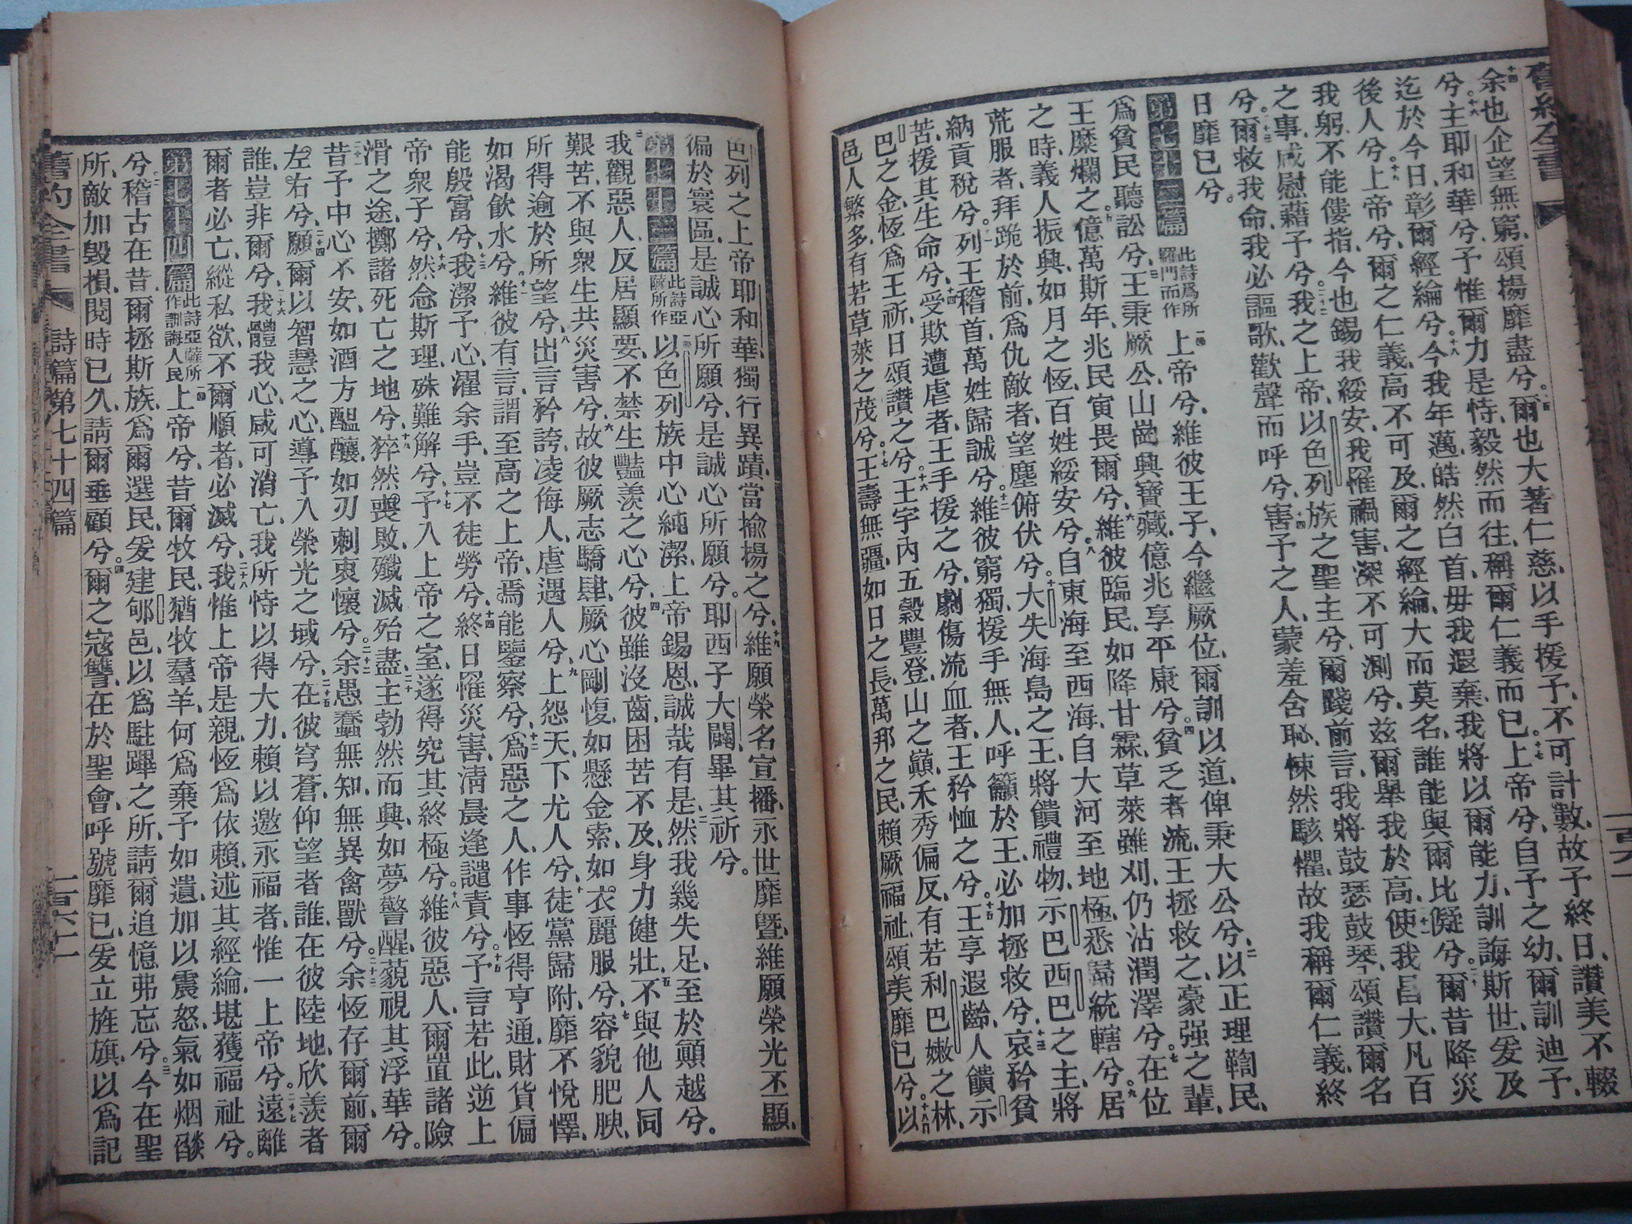 舊約全書
余也企望無窮頌揚靡盡兮爾也大著仁慈以手援予不可計數故予終日讚美不輟
兮主耶和華兮予惟爾力是恃毅然而往稱爾仁義而已上帝兮自予之幼爾訓迪予
迄於今日彰爾經綸兮今我年邁皓然白首毋我遐棄我將以爾能力訓誨斯世爰及
後人兮上帝兮爾之仁義高不可及爾之經綸大而莫名誰能與爾比儗兮爾昔降災
我躬不能僂指今也錫我綏安我罹禍害深不可測兮茲爾舉我於高使我昌大凡百
之事咸慰藉予兮我之上帝以色列族之聖主兮爾踐前言我將鼓瑟鼓琴頌讚爾名
兮爾救我命我必謳歌歡聲而呼兮害予之人蒙羞含恥悚然駭懼故我稱爾仁義終
日靡已兮
第七十二篇 此詩爲所羅門而作 上帝兮維彼王子今繼厥位爾訓以道俾秉大公兮以正理鞫民
爲貧民聽訟兮王秉厥公山崗興寶藏億兆享平康兮貧乏者流王拯救之豪强之輩
王糜爛之億萬斯年兆民寅畏爾兮維彼臨民如降甘霖草萊雖刈仍沾潤澤兮在位
之時義人振興如月之恆百姓綏安兮自東海至西海自大河至地極悉歸統轄兮居
荒服者拜跪於前爲仇敵者望塵俯伏兮大失海島之王將饋禮物示巴西巴之主將
納貢稅兮列王稽首萬姓歸誠兮維彼窮獨援手無人呼籲於王必加拯救兮哀矜貧
苦援其生命兮受欺遭虐者王手援之兮劇傷流血者王矜恤之兮王享遐齡人饋示
巴之金恆爲王祈日頌讚之兮王宇內五穀豐登山之巔禾秀偏反有若利巴嫩之林
邑人繁多有若草萊之茂兮王壽無疆如日之長萬邦之民賴厥福祉頌美靡已兮以
色列之上帝耶和華獨行異蹟當揄揚之兮維願榮名宣播永世靡曁維願榮光丕顯
徧於寰區是誠心所願兮是誠心所願兮耶西子大闢畢其祈兮
第七十三篇 此詩亞薩所作 以色列族中心純潔上帝錫恩誠哉有是然我幾失足至於顚越兮
我觀惡人反居顯要不禁生豔羨之心兮彼雖沒齒困苦不及身力健壯不與他人同
艱苦不與衆生共災害兮故彼厥志驕肆厥心剛愎如懸金索如衣麗服兮容貌肥腴
所得逾於所望兮出言矜誇凌侮人虐遇人兮上怨天下尤人兮徒黨歸附靡不悅懌
如渴飮水兮維彼有言謂至高之上帝焉能鑒察兮爲惡之人作事恆得亨通財貨偏
能殷富兮我潔予心濯余手豈不徒勞兮終日罹災害淸晨逢譴責兮予言若此逆上
帝衆子兮然念斯理殊難解兮予入上帝之室遂得究其終極兮維彼惡人爾置諸險
滑之途擲諸死亡之地兮猝然喪敗殲滅殆盡主勃然而興如夢警醒藐視其浮華兮
昔予中心不安如酒方醞釀如刃刺衷懷兮余愚蠢無知無異禽獸兮余恆存爾前爾
左右兮願爾以智慧之心導予入榮光之域兮在彼穹蒼仰望者誰在彼陸地欣羡者
誰豈非爾兮我體我心咸可消亡我所恃以得大力賴以邀永福者惟一上帝兮遠離
爾者必亡縱私欲不爾順者必滅兮我惟上帝是親恆爲依賴述其經綸堪獲福祉兮
第七十四篇 此詩亞薩所作訓誨人民 上帝兮昔爾牧民猶牧羣羊何爲棄予如遺加以震怒氣如烟燄
兮稽古在昔爾拯斯族爲爾選民爰建郇邑以爲駐蹕之所請爾追憶弗忘兮今在聖
所敵加毀損閱時已久請爾垂顧兮爾之寇讐在於聖會呼號靡已爰立旌旗以爲記
舊約全書 詩篇第七十四篇